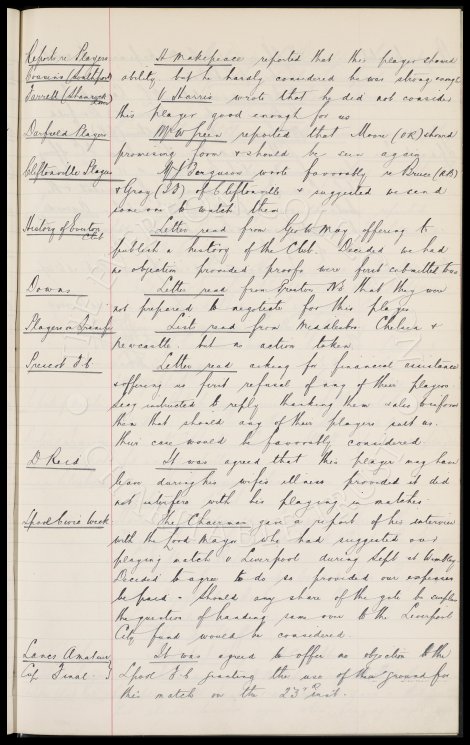 Reports re Players H Makepeace reported that this player showed
Cousins (Southport) ability but he hardly considered he was strong enough
Farrell (Shamrock) V Harris wrote that he did not consider
this player good enough for us
Darfield Players Mr W Green reported that Moore (OR) showed
promising form & should be seen again
Cliftonville Players Mr J Ferguson wrote favorably re Bruce
& Gray of Cliftonville & suggested we send
some one to watch them.
History of Everton Letter read from Geo W May offering to
Club publish a history of the Club. Decided we had
no objection provided proofs were first submitted to us
Downs Letter read from Preston N.E that they were
not prepared to negotiate for this player
Players on Transfer List read from Middlesbro, Chelsea &
Newcastle. but no action taken
Prescot F.C Letter read asking for financial assistance
& offering us first refusal of any of their players.
Secy instructed to reply thanking them & also inform
them that should any of their players suit us.
their case would be favorably considered.
D Reid It was agreed that this player may have
leave during his wifes illness provided it did
not interfere with his playing in matches.
Lpool Civic Week The Chairman gave a report of his interview
with the Lord Mayor who had suggested our
playing match v Liverpool during Sept at Wembley.
Decided to agree to do so provided our expenses
be paid & should any share of the gate be
the question of handing same over to the Liverpool
City fund would be considered.
Lancs Amateur It was agreed to offer no objection to the
Cup Final Lpool F.C granting the use of their ground for
this match on the 23rd inst.